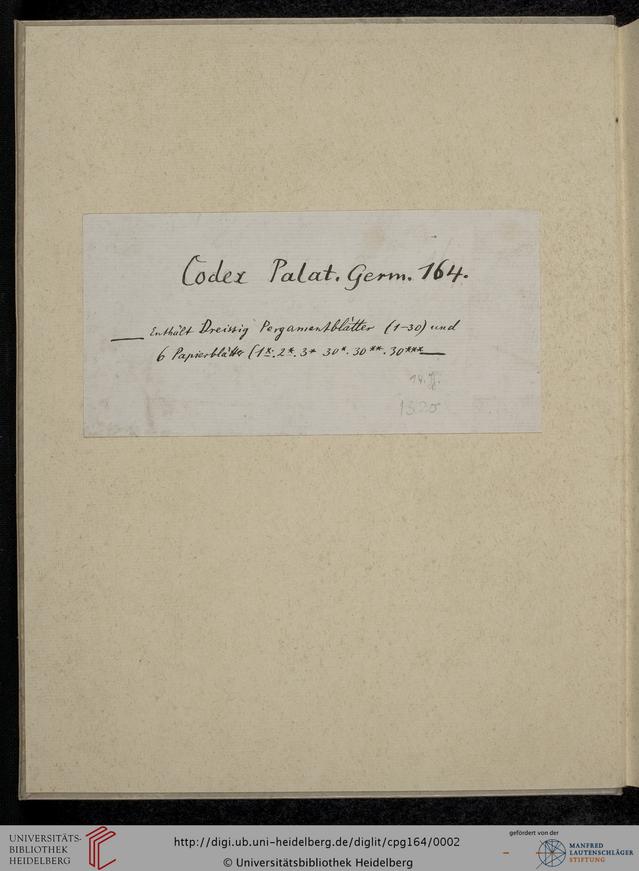 Codex Palat. Germ. 164.
Enthält Dreissig Pergamentblätter (1-30) und
6 Papierblätter (1*. 2*. 3* 30*. 30**. 30***
14. Jh.
UNIVERSITÄTS-
BIBLIOTHEK
HEIDELBERG
http://digi.ub.uni-heidelberg.de/diglit/cpg164/0002
© Universitätsbibliothek Heidelberg
gefördert von der
MANFRED
LAUTENSCHLÄGER
STIFTUNG